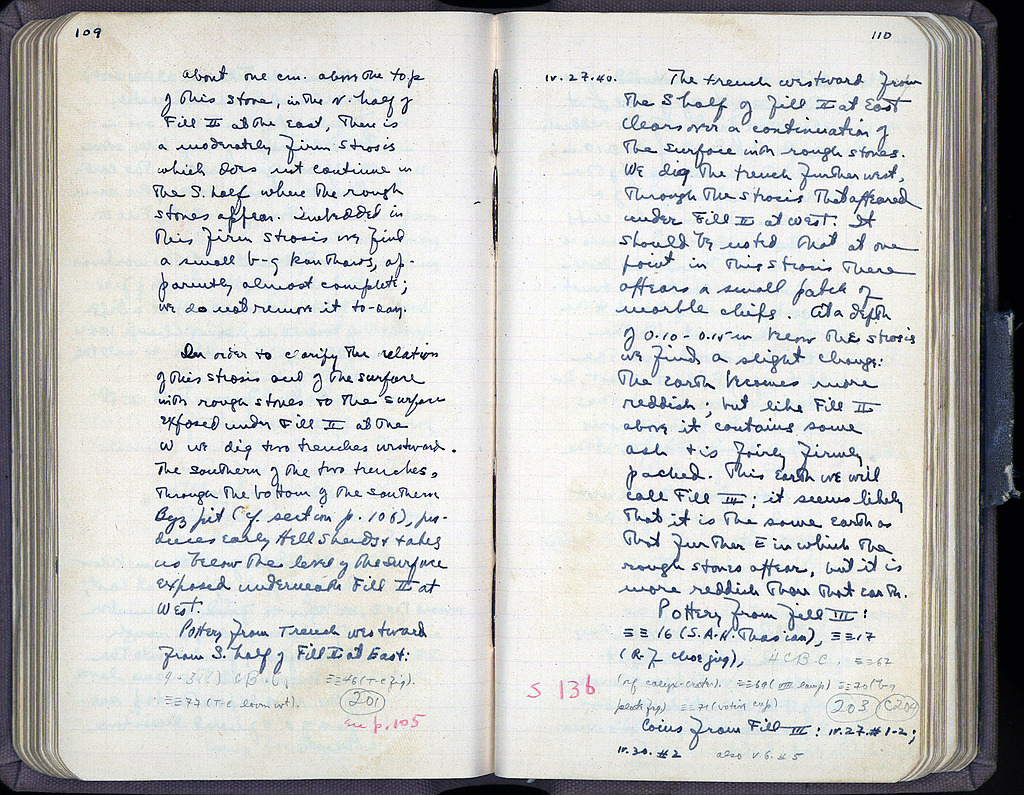 109
about one cm. above the top
of this stone, in the N. half of
Fill II at the East, there is
a moderately firm strosis
which does not continue in
the S. half where the rough
stones appear. Imbedded in
this firm strosis we find
a small b-g kantharos, ap-
parently almost complete;
we do not remove it to-day.
In order to clarify the relation
of this strosis and of the surface
with rough stones to the surface
exposed under Fill II at the
W we dig two trenches westward.
The southern of the two trenches,
through the bottom of the southern
Byz pit (cf. section p. 106), pro-
duces early Hell sherds & takes
us below the level of the surface
exposed underneath Fill II at
West.
Pottery from Trench westward
from S. half of Fill II at East:
ΞΞ46 (T-C fig).
ΞΞ77 (T-C loom wt).
201
see p. 105
110
IV.27.40. The trench westward from
the S half of Fill II at East
clears over a continuation of
the surface with rough stones.
We dig the trench further west,
through the strosis that appeared
under Fill II at West. It
should be noted that at one
point in this strosis there
appears a small patch of
marble chips. At a depth
of 0.10-0.15 m below the strosis
we find a slight change:
the earth becomes more
reddish; but like Fill II
above it contains some
ash & is fairly firmly
packed. This earth we will
call Fill III; it seems likely
that it is the same earth as
that further E in which the
rough stones appear, but it is
more reddish than that earth.
Pottery from Fill III:
ΞΞ16 (S.A.H. Thasian), ΞΞ17
(R-f choe jug), 4 C B.C. ΞΞ62
(rf calyx-krater). ΞΞ69 (VIII lamp) ΞΞ70 (b-g
ΞΞ71 (votive cup). 203 C204
S 136
Coins from Fill III: IV.27.#1-2;
IV.30.#2 also V.6.#5